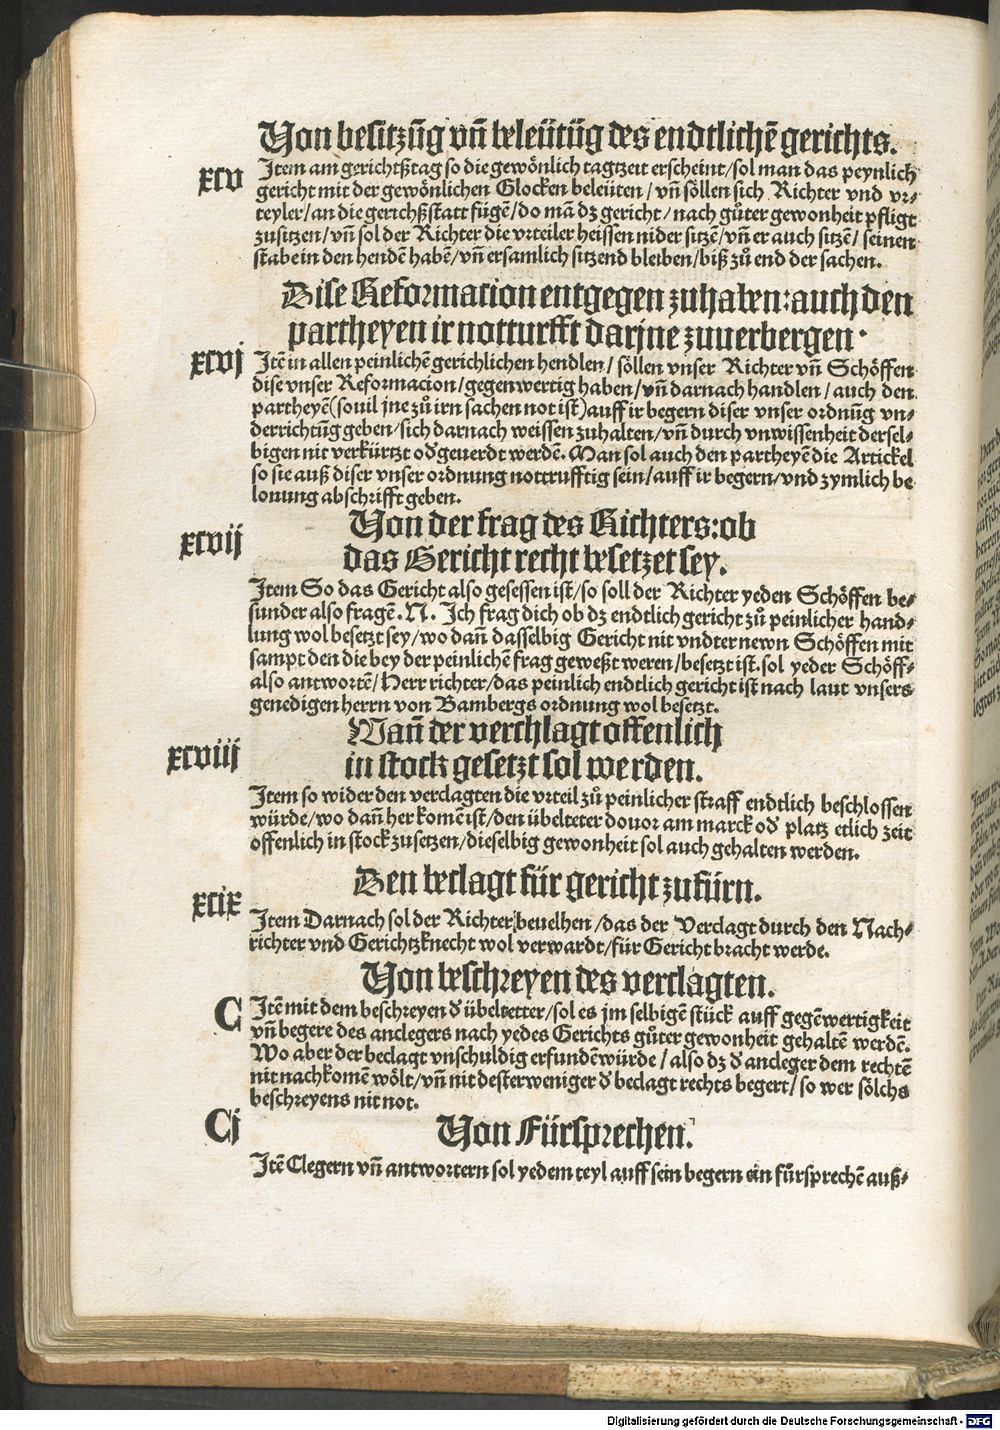 Von besitzūg vn̄ beleütūg des endtlichē gerichts.
xcv
Item am gerichtßtag so die gewönlich tagtzeit erscheint/ sol man das peynlich
gericht mit der gewönlichen Glocken beleüten/ vn̄ söllen sich Richter vnd vr⸗
teyler/ an die gerichßstatt fügē/ do mā dz gericht/ nach gůter gewonheit pfligt
zusitzen/ vn̄ sol der Richter die vrteiler heissen nider sitzē/ vn̄ er auch sitzē/ seinen
stabe in den hendē habē/ vn̄ ersamlich sitzend bleiben/ biß zů end der sachen.
Dise Reformacion entgegen zuhaben: auch den
partheyen ir notturfft darjne zuuerbergen.
xcvj
Itē in allen peinlichē gerichlichen hendlen/ söllen vnser Richter vn̄ Schöffen
dise vnser Reformacion/ gegenwertig haben/ vn̄ darnach handlen/ auch den
partheyē (souil jne zů irn sachen not ist) auff ir begern diser vnser ordnūg vn⸗
derrichtūg geben/ sich darnach weissen zuhalten/ vn̄ durch vnwissenheit dersel⸗
bigen nit verkürtzt od̓ geuerdt werdē. Man sol auch den partheyē die Artickel
so sie auß diser vnser ordnung nottrufftig sein/ auff ir begern/ vnd zymlich be
lonung abschrifft geben.
Von der frag des Richters: ob
das Gericht recht besetzet sey.
xcvij
Item So das Gericht also gesessen ist/ so soll der Richter yeden Schöffen be⸗
sunder also fragē. N. Ich frag dich ob dz endtlich gericht zů peinlicher hand⸗
lung wol besetzt sey/ wo dan̄ dasselbig Gericht nit vndter newn Schöffen mit
sampt den die bey der peinlichē frag geweßt weren/ besetzt ist. sol yeder Schöff⸗
also antwortē/ Herr richter/ das peinlich endtlich gericht ist nach laut vnsers
genedigen herrn von Bambergs ordnung wol besetzt.
Wan̄ der verchlagt offenlich
in stock gesetzt sol werden.
xcviij
Item so wider den verclagten die vrteil zů peinlicher straff endtlich beschlossen
würde/ wo dan̄ herkomē ist/ den übelteter douor am marck od̓ platz etlich zeit
offenlich in stock zusetzen/ dieselbig gewonheit sol auch gehalten werden.
Den beclagt für gericht zufürn.
xcix
Item Darnach sol der Richter beuelhen/ das der Verclagt durch den Nach⸗
richter vnd Gerichtzknecht wol verwardt/ für Gericht bracht werde.
Von beschreyen des verclagten.
C
Itē mit dem beschreyen d̓ übeltetter/ sol es jm selbigē stück auff gegēwertigkeit
vn̄ begere des anclegers nach yedes Gerichts gůter gewonheit gehaltē werdē.
Wo aber der beclagt vnschuldig erfundē würde/ also dz d̓ ancleger dem rechtē
nit nachkomē wölt/ vn̄ nit desterweniger d̓ beclagt rechts begert/ so wer sölchs
beschreyens nit not.
Cj
Von Fürsprechen.
Itē Clegern vn̄ antwortern sol yedem teyl auff sein begern ein fürsprechē auß⸗
Digitalisierung gefördert durch die Deutsche Forschungsgemeinschaft - DFG